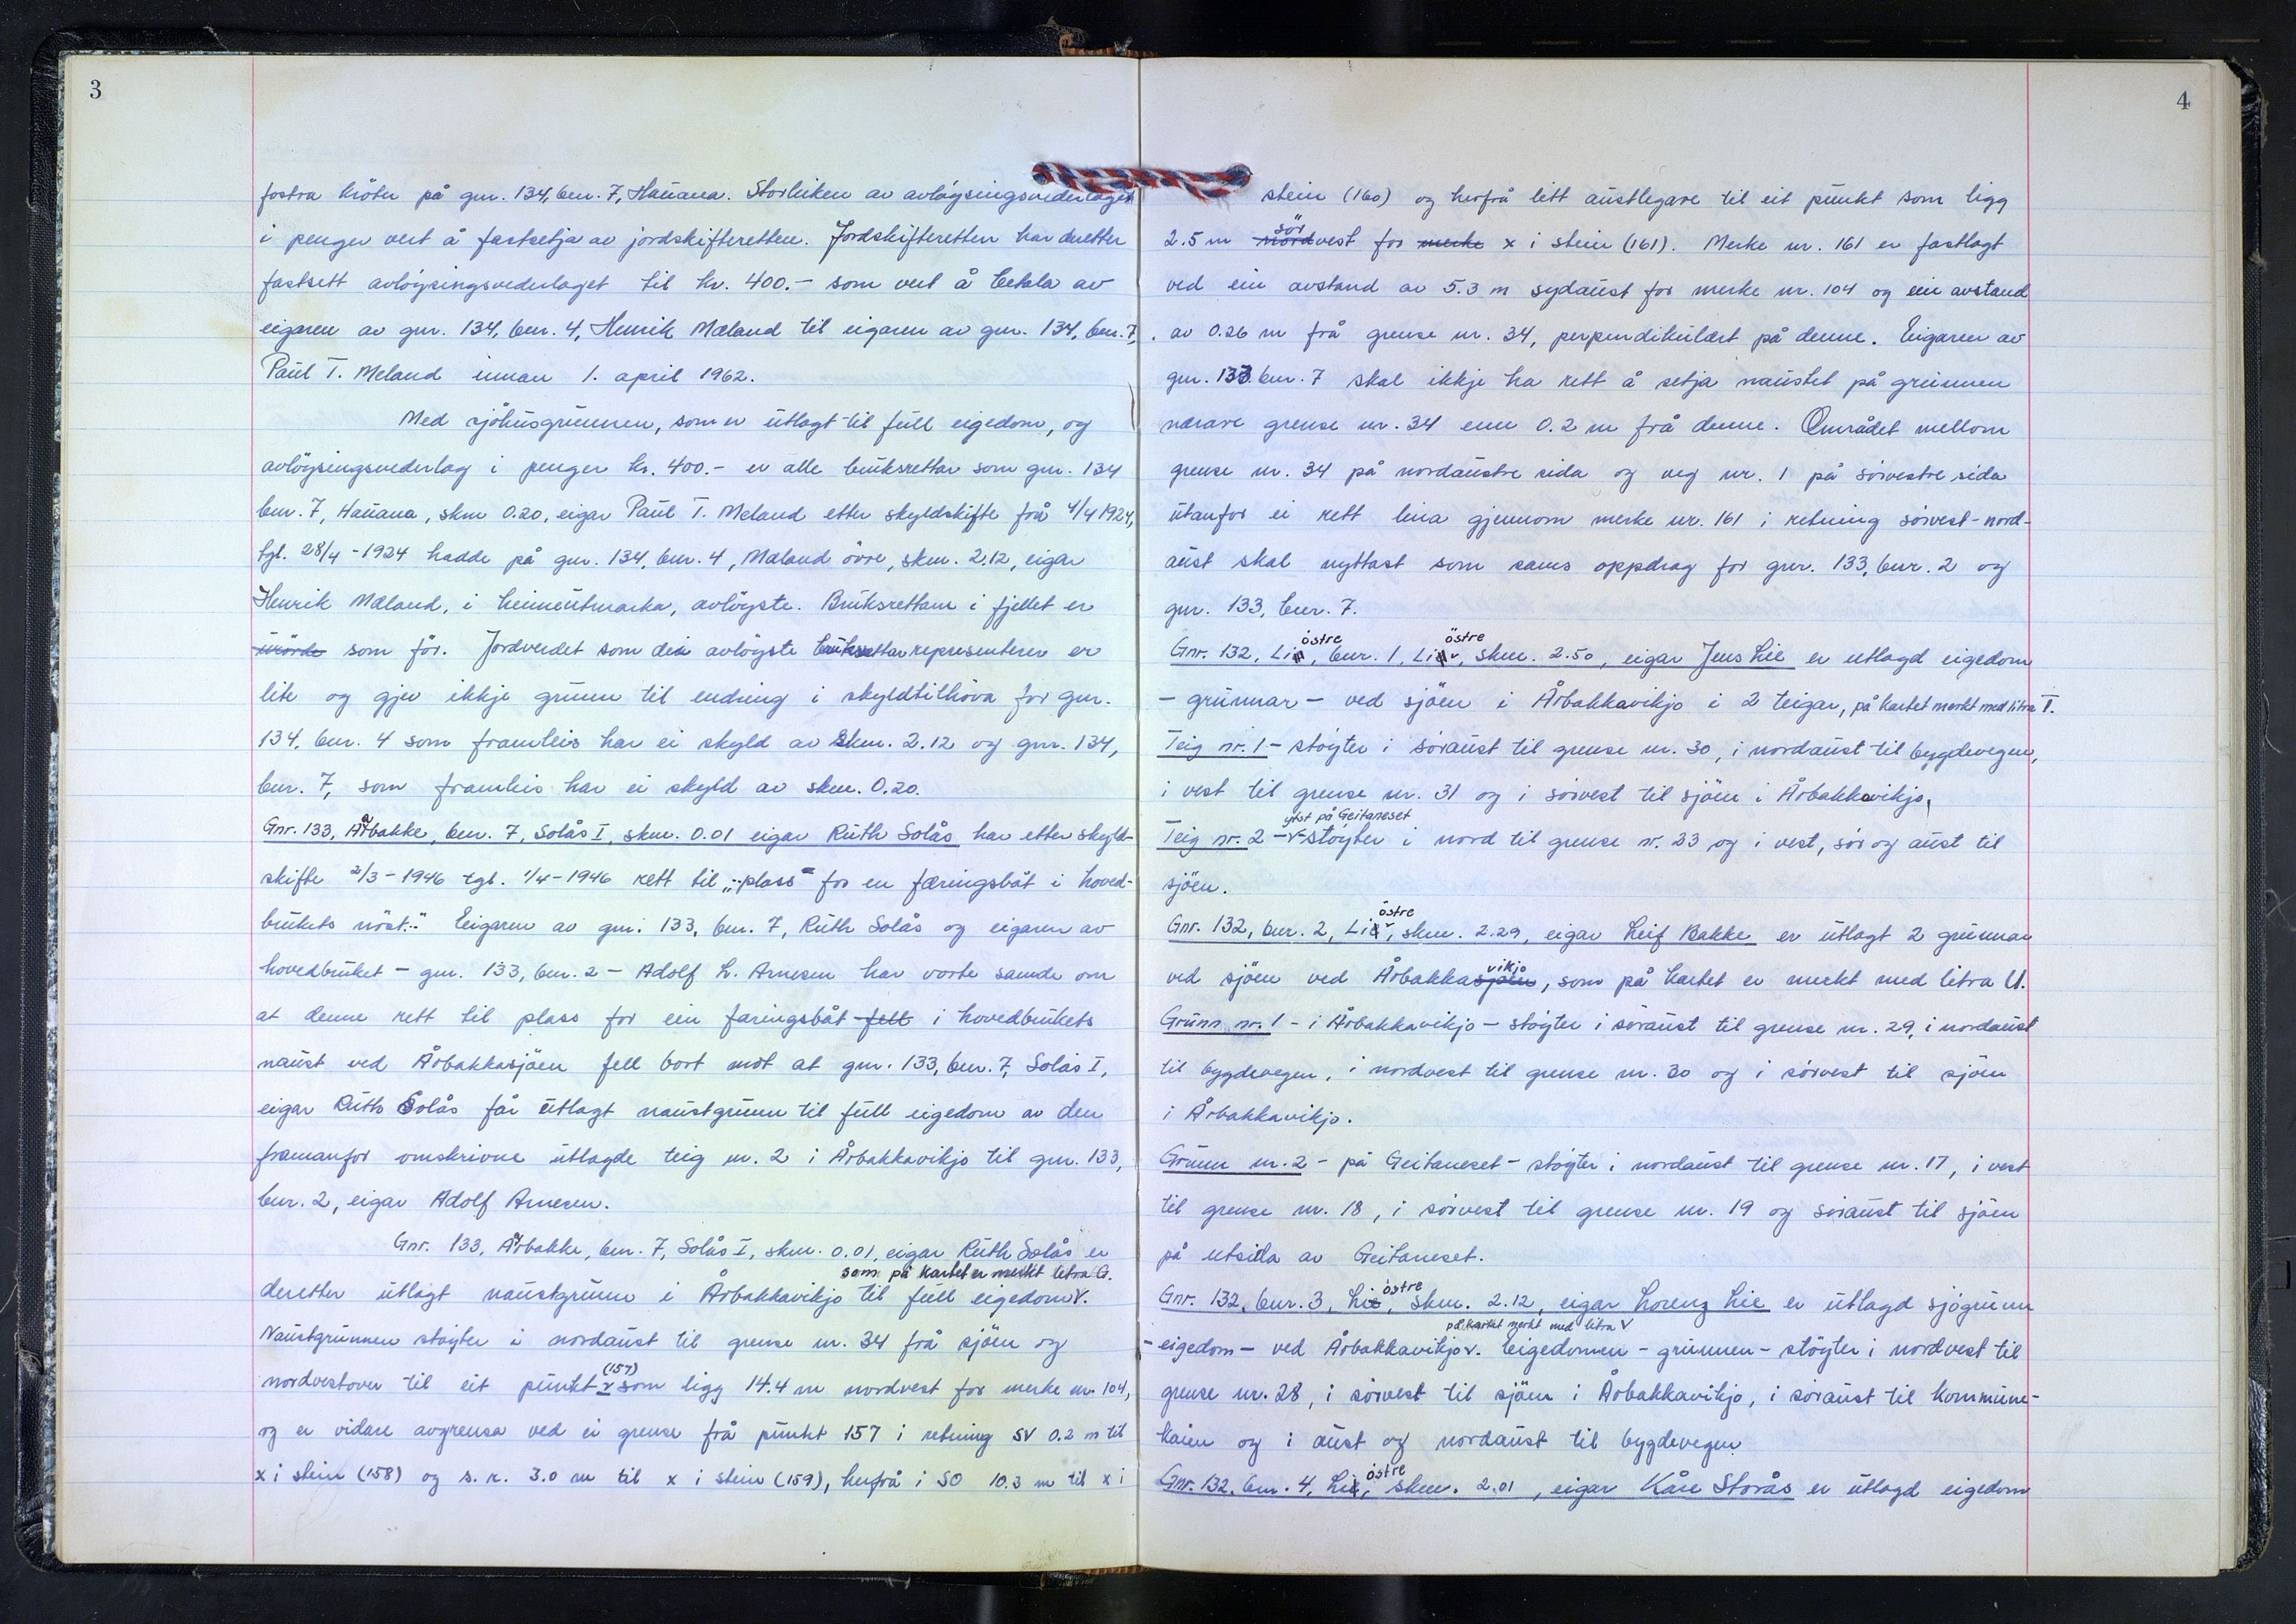 3
fostra krøter på gnr. 134, bnr. 7, Hauana. Storleiken av avløysingsvederlaget
i pengar vert å fastsetja av jordskifteretten. Jordskifteretten har deretter
fastsett avløysingsvederlaget til kr. 400.- som vert å betala av
eigaren av gnr. 134, bnr. 4, Henrik Mæland til eigaren av gnr. 134, bnr. 7,
Paul T. Meland innan 1. april 1962.
Med sjøhusgrunnen, som er utlagt til full eigedom, og
avløysingsvederlag i penger kr. 400.- er alle bruksrettar som gnr. 134
bnr. 7, Hauana, skm 0.20, eigar Paul T. Meland etter skyldskifte frå 4/4 1924,
tgl. 28/4-1924 hadde på gnr. 134, bnr. 4, Mæland øvre, skm. 2.12, eigar
Henrik Mæland, i heimeutmarka, avløyste. Bruksrettane i fjellet er
urørde som før. Jordverdet som dei avløyste bruksrettar representerer er
lite og gjev ikkje grunn til endring i skyldtilhøva for gnr.
134, bnr. 4 som framleis har ei skyld av skm. 2.12 og gnr. 134,
bnr. 7, som framleis har ei skyld av skm. 0.20.
Gnr. 133, Årbakke, bnr. 7, Solås I, skm. 0.01 eigar Ruth Solås har etter skyld-
skifte 2/3-1946 tgl. 1/4-1946 rett til „plass for en færingsbåt i hoved-
brukets nøst." Eigaren av gnr. 133, bnr. 7, Ruth Solås og eigaren av
hovedbruket - gnr. 133, bnr. 2 - Adolf L. Arnesen har vorte samde om
at denne rett til plass for ein færingsbåt fell i hovedbrukets
naust ved Årbakkasjøen fell bort mot at gnr. 133, bnr. 7, Solås I,
eigar Ruth Solås får utlagt naustgrunn til full eigedom av den
framanfor omskrivne utlagde teig nr. 2 i Årbakkavikjo til gnr. 133,
bnr. 2, eigar Adolf Arnesen.
Gnr. 133, Årbakke, bnr. 7, Solås I, skm. 0.01, eigar Ruth Solås er
som på kartet er merkt litra G.
deretter utlagt naustgrunn i Årbakkavikjo til full eigedom v.
Naustgrunnen støyter i nordaust til grense nr. 34 frå sjøen og
(157)
nordvestover til eit punkt v som ligg 14.4 m nordvest for merke nr. 104,
og er vidare avgrensa ved ei grense frå punkt 157 i retning SV 0.2 m til
x i stein (158) og s.r. 3.0 m til x i stein (159), herfrå i SO 10.3 m til x i
4
stein (160) og herfrå litt austlegare til eit punkt som ligg
sör
2.5 m nordvest for merke x i stein (161). Merke nr. 161 er fastlagt
ved ein avstand av 5.3 m sydaust for merke nr. 104 og ein avstand
av 0.26 m frå grense nr. 34, perpendikulært på denne. Eigaren av
gnr. 133 bnr. 7 skal ikkje ha rett å setja naustet på grunnen
nærare grense nr. 34 enn 0.2 m frå denne. Området mellom
grense nr. 34 på nordaustre sida og veg nr. 1 på sørvestre sida
utanfor ei rett lina gjennom merke nr. 161 i retning sørvest-nord-
aust skal nyttast som sams oppdrag for gnr. 133, bnr. 2 og
gnr. 133, bnr. 7.
östre östre
Gnr. 132, Li, bnr. 1, Li v, skm. 2.50, eigar Jens Lie er utlagd eigedom
- grunnar - ved sjøen i Årbakkavikjo i 2 teigar, på kartet merkt med litra T.
Teig nr. 1 - støyter i søraust til grense nr. 30, i nordaust til bygdevegen,
i vest til grense nr. 31 og i sørvest til sjøen i Årbakkavikjo,
ytst på Geitaneset
Teig nr. 2 - v - støyter i nord til grense nr. 23 og i vest, sør og aust til
sjøen.
östre
Gnr. 132, bnr. 2, Li v, skm. 2.29, eigar Leif Bakke er utlagt 2 grunnar
vikjo
ved sjøen ved Årbakkasjøen, som på kartet er merkt med litra U.
Grunn nr. 1 - i Årbakkavikjo - støyter i søraust til grense nr. 29, i nordaust
til bygdevegen, i nordvest til grense nr. 30 og i sørvest til sjøen
i Årbakkavikjo.
Grunn nr. 2 - på Geitaneset - støyter i nordaust til grense nr. 17, i vest
til grense nr. 18, i sørvest til grense nr. 19 og søraust til sjøen
på utsida av Geitaneset.
östre
Gnr. 132, bnr. 3, Li, skm. 2.12, eigar Lorenz Lie er utlagd sjøgrunn
på kartet merkt med litra V
- eigedom - ved Årbakkavikjo v. Eigedomen - grunnen - støyter i nordvest til
grense nr. 28, i sørvest til sjøen i Årbakkavikjo, i søraust til kommune-
kaien og i aust og nordaust til bygdevegen
östre
Gnr. 132, bnr. 4, Li, skm. 2.01, eigar Kåre Storås er utlagd eigedom